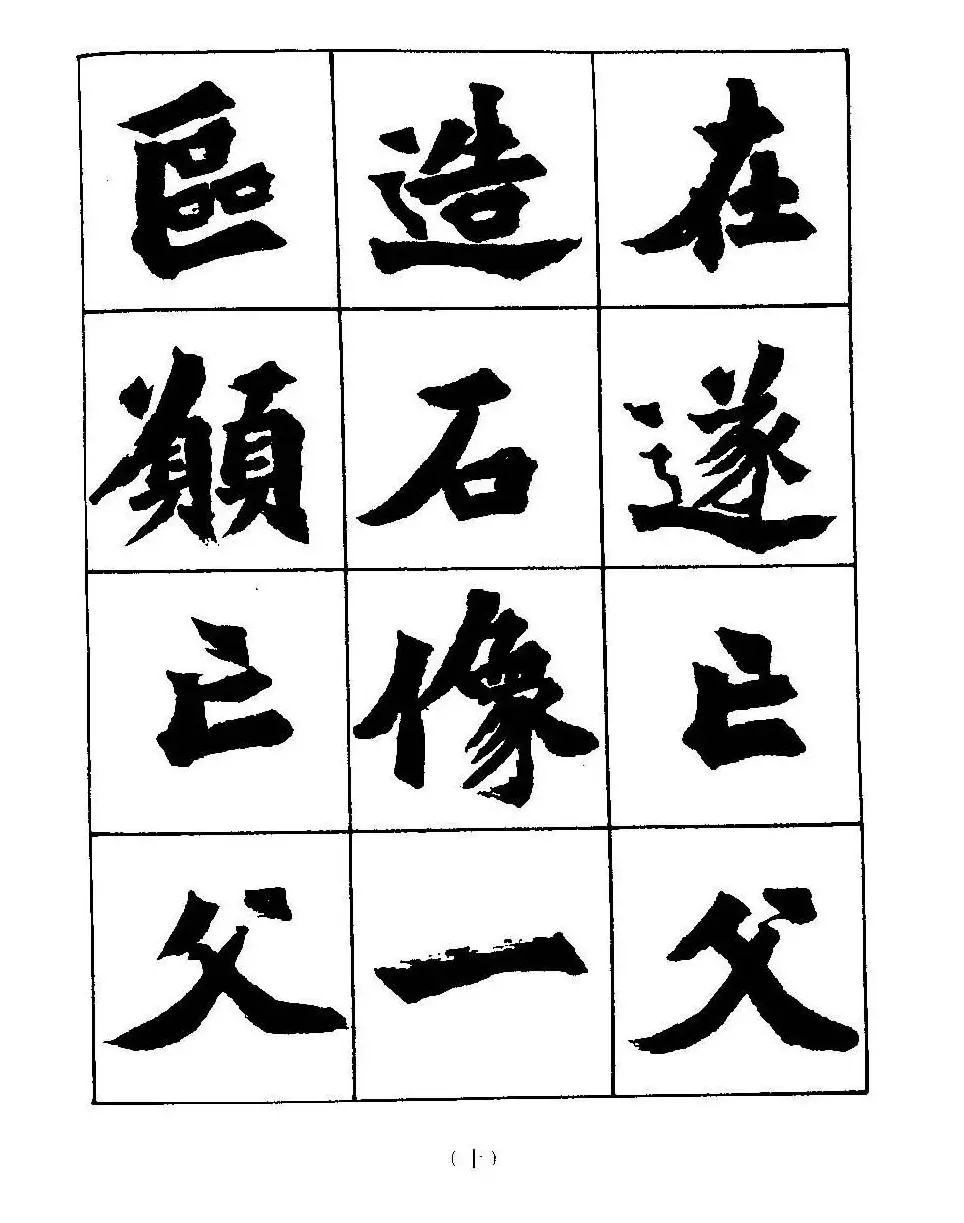 在遂亡父
造石像一
區願亡父
（十）